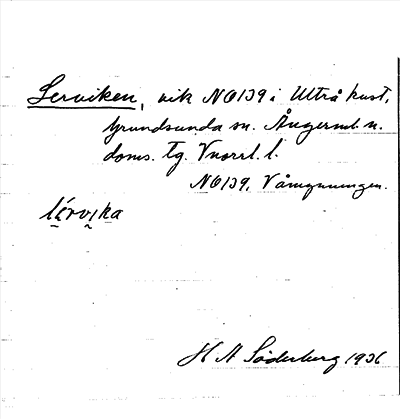 Lerviken, vik NO139 i Ultrå kust,
Grundsunda sn. Ångerml. n.
doms. tg. Vnorrl. l.
NO139, Våmynningen.
lérvika
H A Söderberg 1936